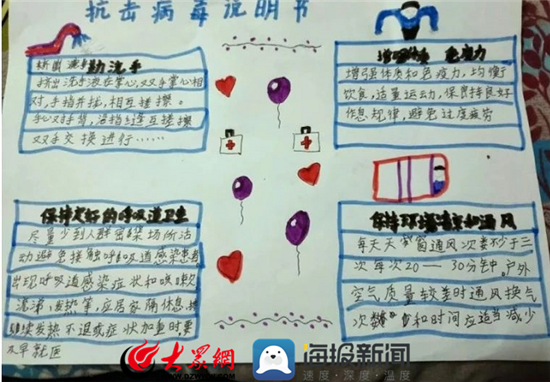 抗击病毒说明书
勤洗手
挤出洗手液在掌心,双手掌心相
对,手指并拢,相互揉擦。
手心对手背,沿指缝互搓擦
双手交换进行……
增强体质 免疫力
增强体质和免疫力,均衡
饮食,适量运动,保持良好
作息规律,避免过度疲劳
保持良好的呼吸道卫生
尽量少到人群密集场所活
动避免接触呼吸道感染患者
出现呼吸道感染症状和咳嗽
流涕,发热等,应居家隔休息,持
续发热不退或症状加重时要
及早就医
保持环境清洁和通风
每天天 窗通风次数不少于三
次每次20—30分钟,户外
空气质量较差时通风换气
次数 和时间应适当减少
大众网
海报新闻
速度·深度·温度